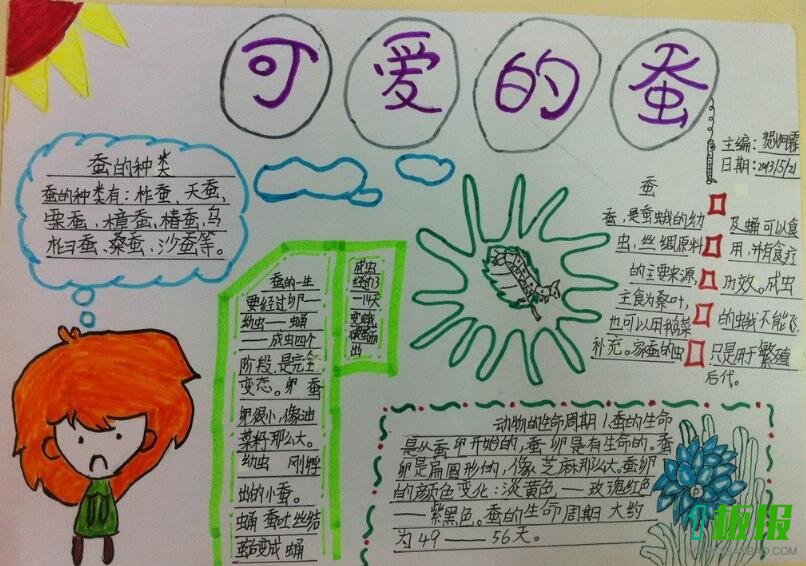 可爱的蚕
主编:贺
日期:2013/5/21
蚕的种类
蚕的种类有:柞蚕、天蚕、
栗蚕、樟蚕、椿蚕、乌
桕蚕、桑蚕、沙蚕等。
蚕的一生
要经过卵—
幼虫——蛹
——成虫四个
阶段,是完全
变态。卵 蚕
卵很小,像油
菜籽那么大。
幼虫 刚孵
出的小蚕。
蛹 蚕吐丝结
茧变成蛹
成虫
经过13
—14天
变蛾
出
蚕
蚕,是蚕蛾的幼
虫,丝绸原料
的主要来源,
主食为桑叶,
也可以用莴菜
补充。家蚕的虫
及蛹可以食
用,并有食疗
功效。成虫
的虫蛾不能飞,
只是用于繁殖
后代。
动物的生命周期 1.蚕的生命
是从蚕卵开始的,蚕卵是有生命的。蚕
卵是扁圆形的,像芝麻那么大。蚕卵
的颜色变化:淡黄色——玫瑰红色
——紫黑色。蚕的生命周期大约
为49——56天。
板报